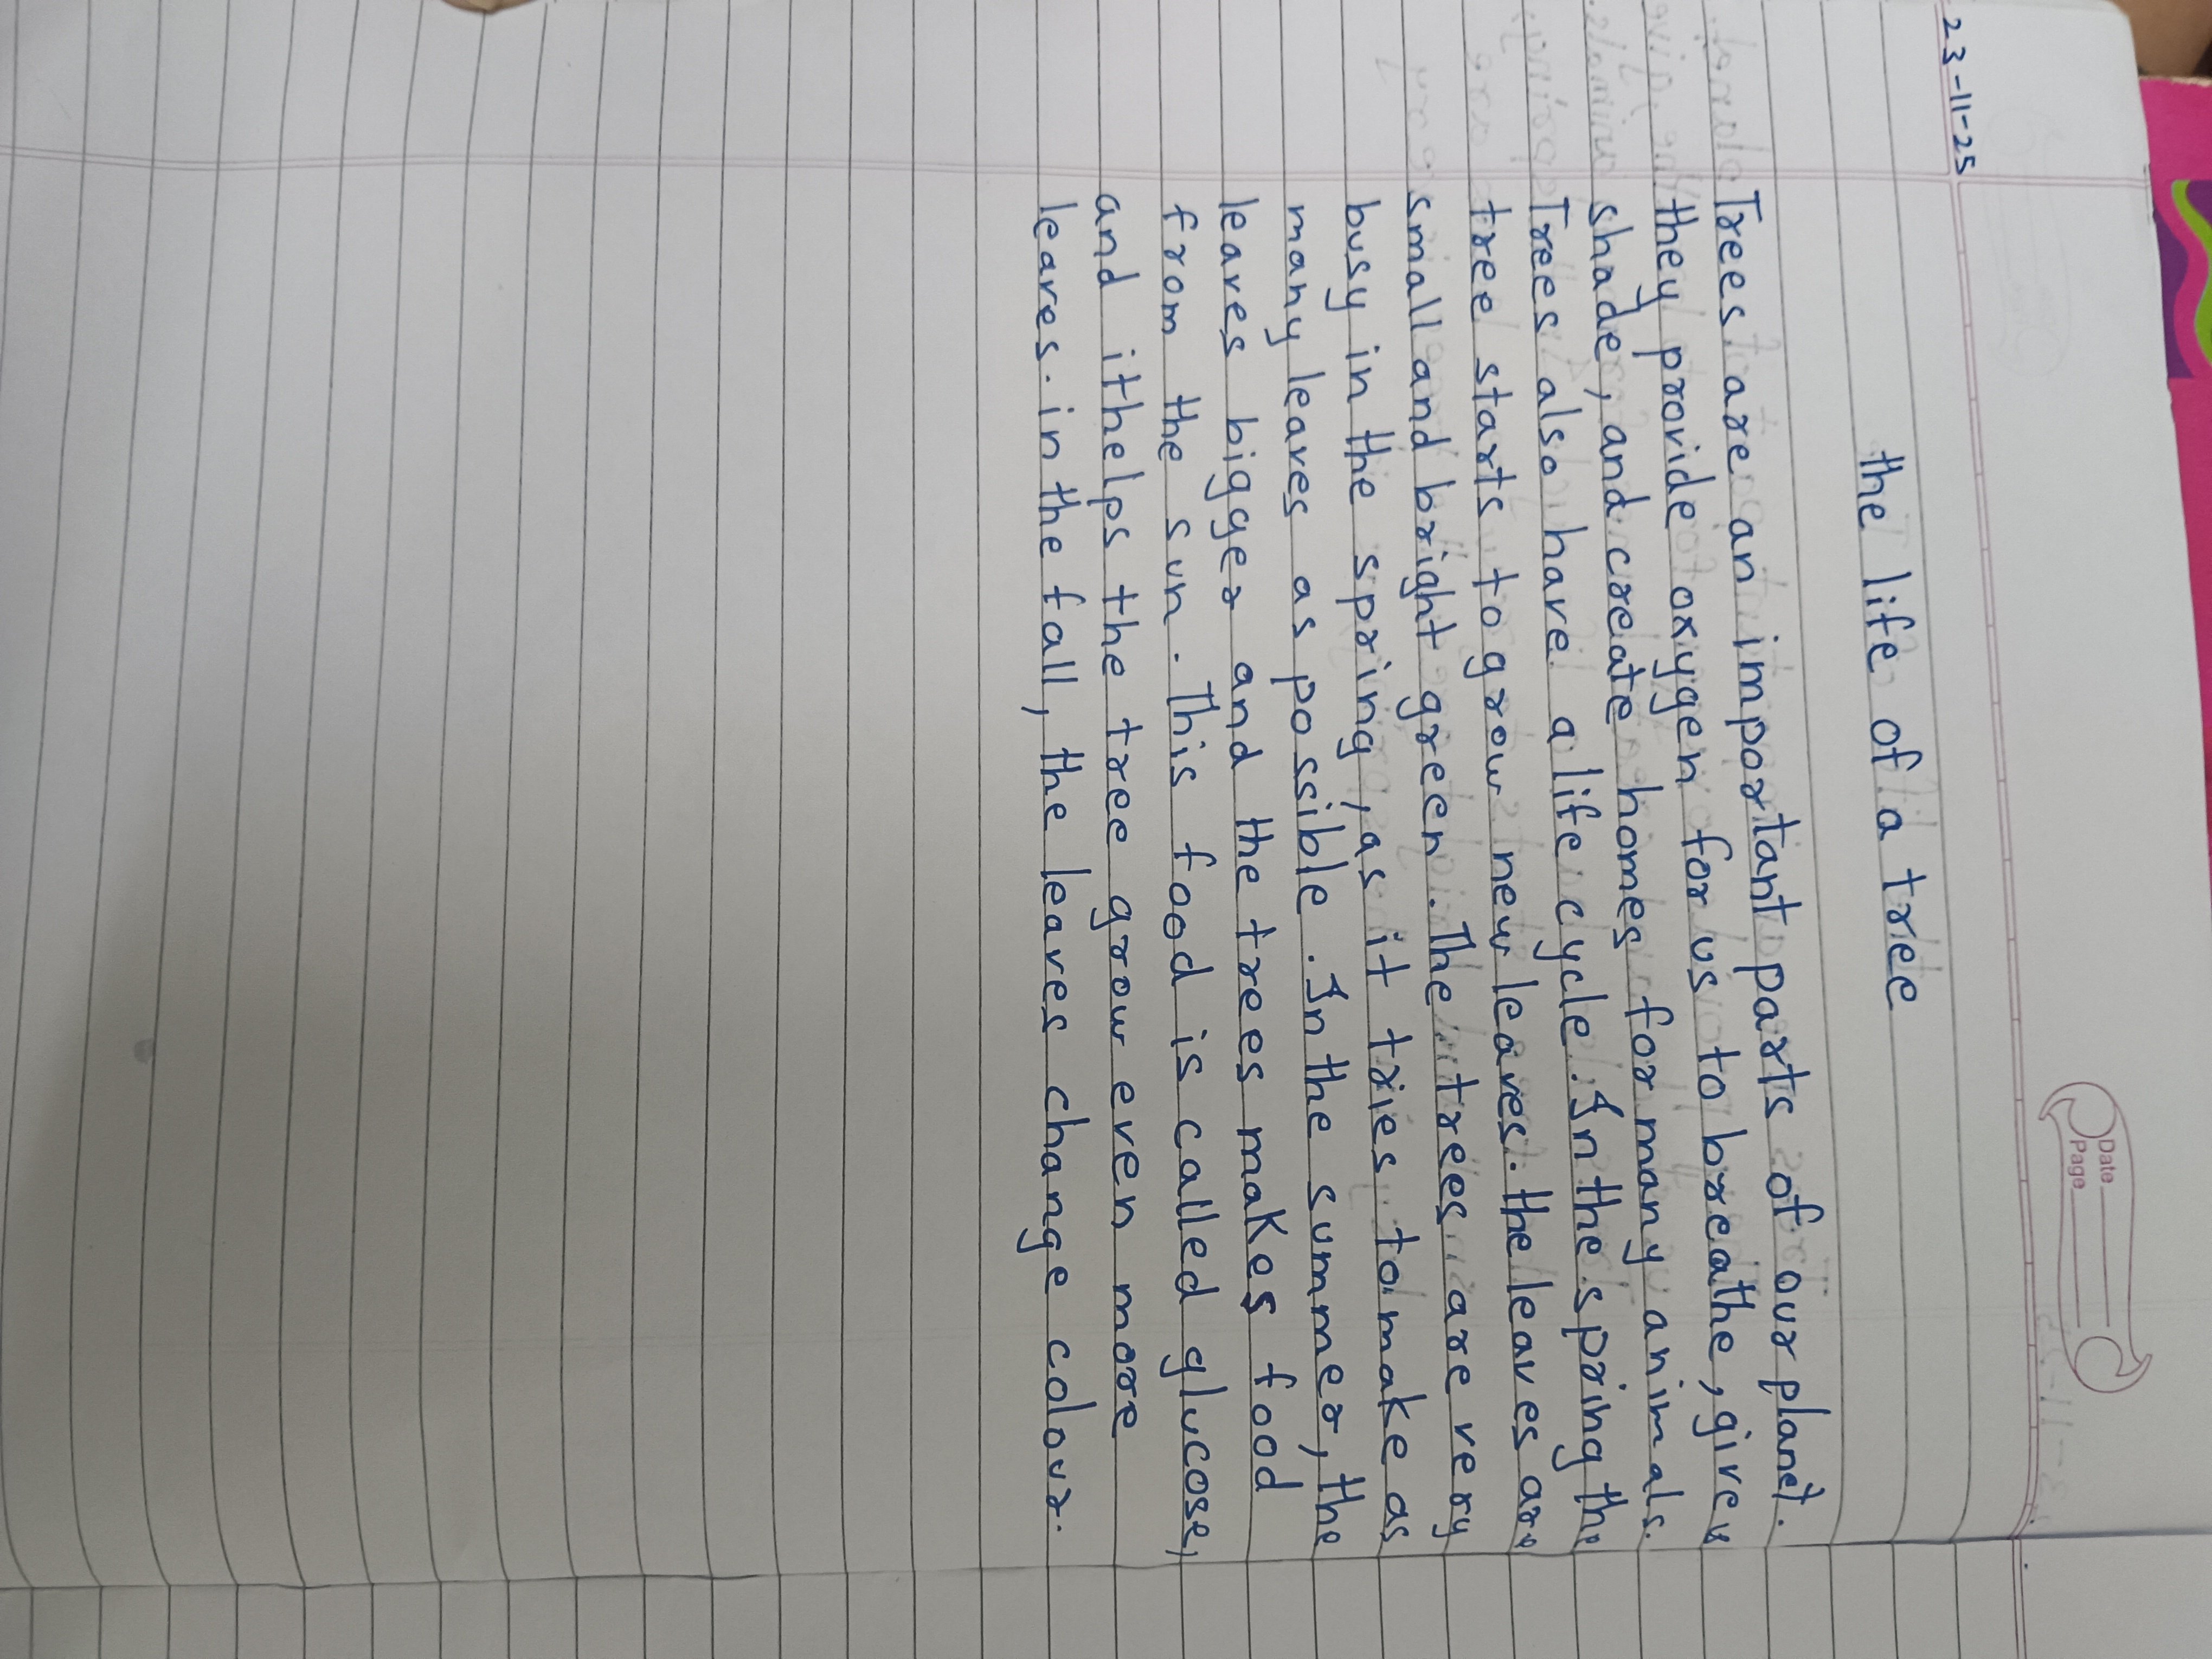 Date
Page
23-11-25
the life of a tree
Trees are an important parts of our planet.
they provide oxygen for us to breathe, give
shade, and create homes for many animals.
Trees also have a life cycle. In the spring the
tree starts to grow new leaves. the leaves are
small and bright green. The trees are very
busy in the spring, as it tries to make as
many leaves as possible. In the summer, the
leaves bigger and the trees makes food
from the sun. This food is called glucose,
and it helps the tree grow even more
leaves. in the fall, the leaves change colour.